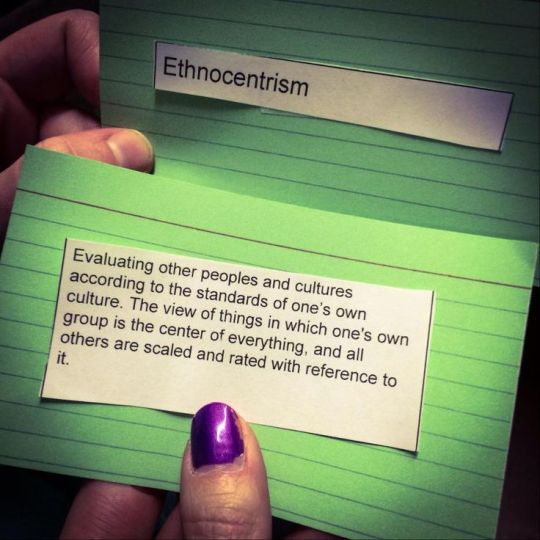 Ethnocentrism
Evaluating other peoples and cultures
according to the standards of one's own
culture. The view of things in which one's own
group is the center of everything, and all
others are scaled and rated with reference to
it.